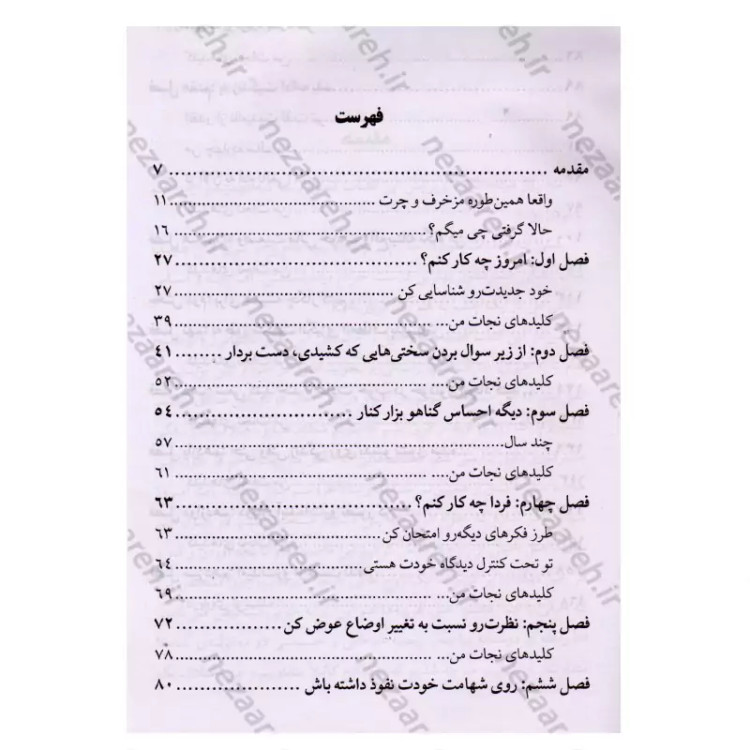 فهرست
مقدمه ........................................ ۷
واقعا همین‌طوره مزخرف و چرت ........................................ ۱۱
حالا گرفتی چی میگم؟ ........................................ ۱۶
فصل اول: امروز چه کار کنم؟ ........................................ ۲۷
خود جدیدت‌رو شناسایی کن ........................................ ۲۷
کلیدهای نجات من... ........................................ ۳۹
فصل دوم: از زیر سوال بردن سختی‌هایی که کشیدی، دست بردار ........ ۴۱
کلیدهای نجات من... ........................................ ۵۲
فصل سوم: دیگه احساس گناهو بزار کنار ........................................ ۵۴
چند سال ........................................ ۵۷
کلیدهای نجات من... ........................................ ۶۱
فصل چهارم: فردا چه کار کنم؟ ........................................ ۶۳
طرز فکرهای دیگه‌رو امتحان کن ........................................ ۶۳
تو تحت کنترل دیدگاه خودت هستی ........................................ ۶۴
کلیدهای نجات من... ........................................ ۶۹
فصل پنجم: نظرت‌رو نسبت به تغییر اوضاع عوض کن .................. ۷۲
کلیدهای نجات من... ........................................ ۷۸
فصل ششم: روی شهامت خودت نفوذ داشته باش .................... ۸۰
nezaareh.ir